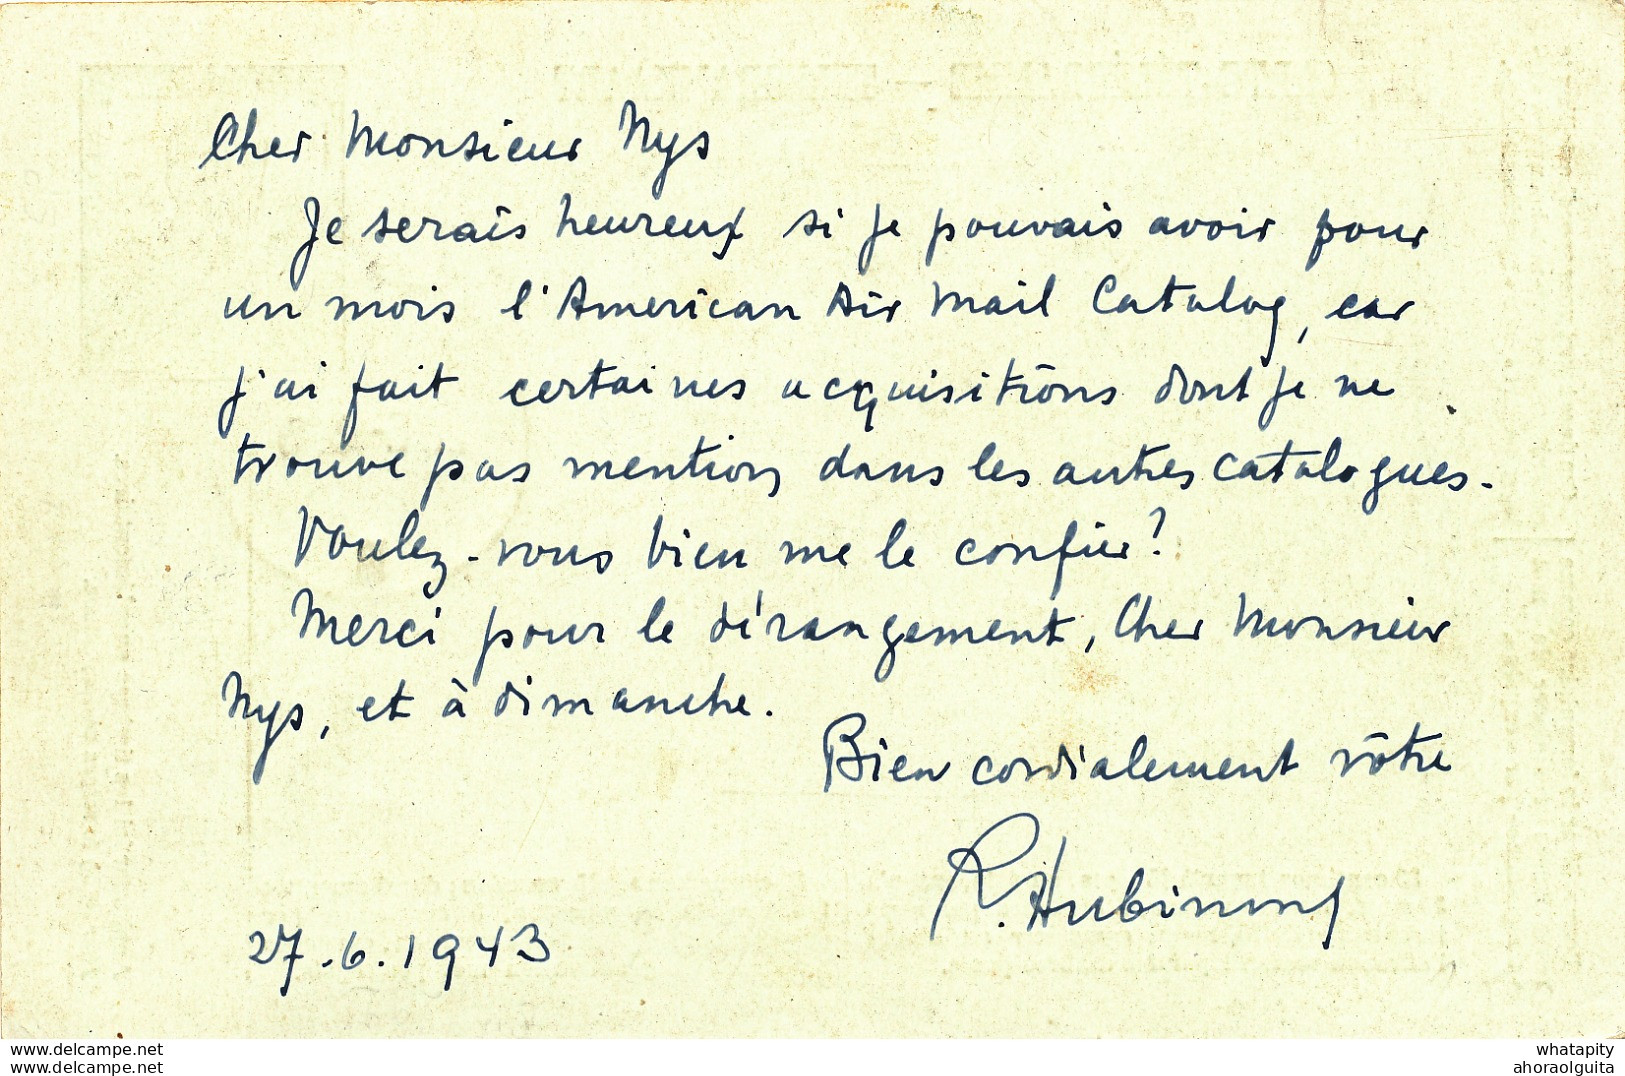 Cher Monsieur Nys
Je serais heureux si je pouvais avoir pour
un mois l'American Air Mail Catalog, car
j'ai fait certaines acquisitions dont je ne
trouve pas mention dans les autres catalogues.
Voulez-vous bien me le confier?
Merci pour le dérangement, Cher Monsieur
Nys, et à dimanche.
Bien cordialement vôtre
R. Hubinont
27.6.1943
www.delcampe.net
www.delcampe.net
whatapity
ahoraolguita